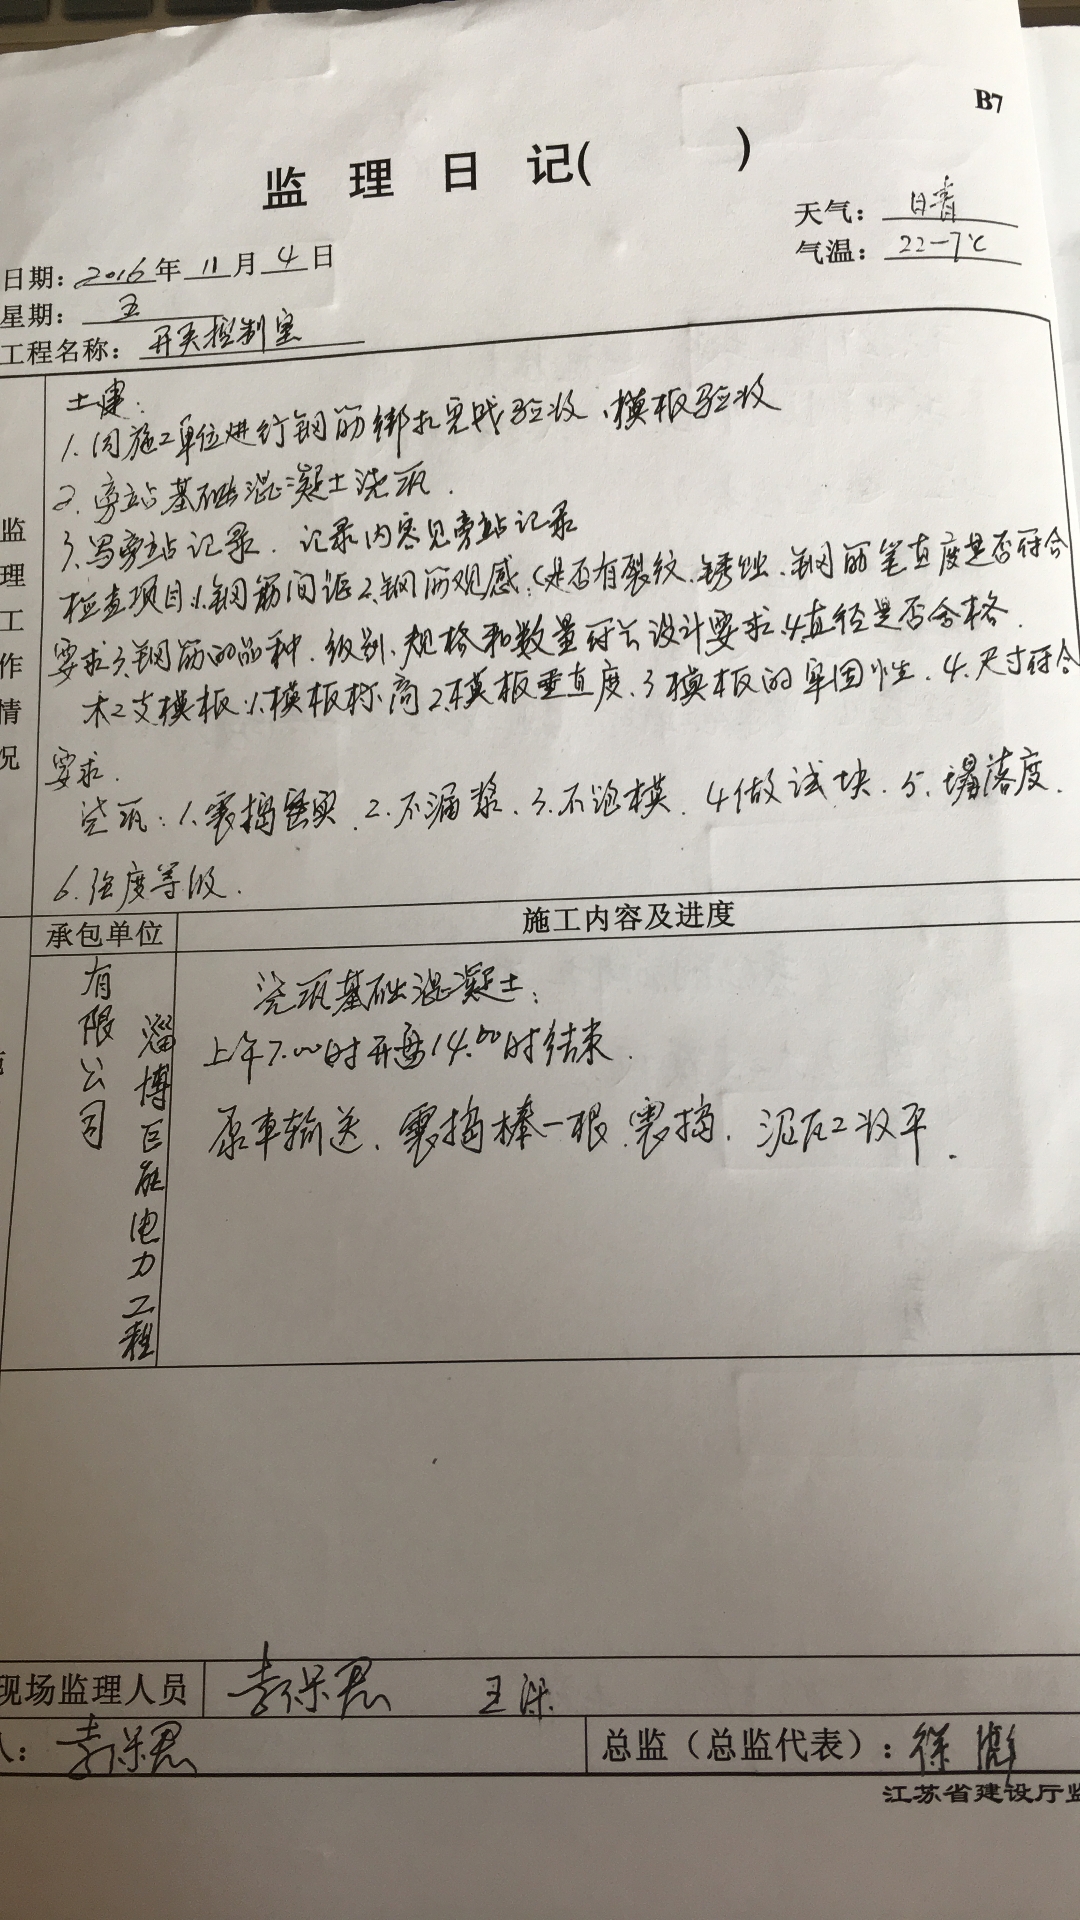 B7
监 理 日 记( )
天气: 晴
气温: 22-7℃
日期: 2016 年 11 月 4 日
星期: 五
工程名称: 开关控制室
监理工作情况
土建:
1.同施工单位进行钢筋绑扎完成验收、模板验收
2.旁站基础混凝土浇筑.
3.写旁站记录. 记录内容见旁站记录
检查项目:1.钢筋间距2.钢筋观感:(是否有裂纹、锈蚀、钢筋笔直度是否符合
要求3.钢筋的品种、级别、规格和数量符合设计要求.4.直径是否合格.
木工支模板:1.模板标高2.模板垂直度、3模板的牢固性、4.尺寸符合
要求.
浇筑:1.震捣密实、2.不漏浆、3.不跑模、4做试块、5.塌落度.
6.强度等级.
承包单位 施工内容及进度
淄博巨能电力工程
有限公司
浇筑基础混凝土:
上午7.00时开盘14.00时结束.
泵车输送、震捣棒一根震捣、泥瓦工收平.
现场监理人员 李保君 王
人: 李保君 总监（总监代表）: 徐
江苏省建设厅监